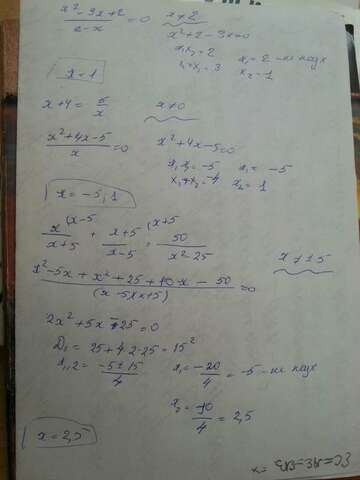 x² - 3x + 2 / 2 - x = 0    x ≠ 2
x² + 2 - 3x = 0
x₁x₂ = 2    x₁ = 2 - не подх
x₁ + x₂ = 3    x₂ = 1
x = 1
x + 4 = 5 / x    x ≠ 0
x² + 4x - 5 / x = 0    x² + 4x - 5 = 0
x₁x₂ = -5    x₁ = -5
x₁ + x₂ = -4    x₂ = 1
x = -5; 1
x (x-5 / x+5 + x+5 (x+5 / x-5 = 50 / x² - 25    x ≠ ±5
x² - 5x + x² + 25 + 10x - 50 / (x-5)(x+5) = 0
2x² + 5x - 25 = 0
D₁ = 25 + 4·2·25 = 15²
x₁,₂ = -5 ± 15 / 4    x₁ = -20 / 4 = -5 - не подх
x₂ = 10 / 4 = 2,5
x = 2,5